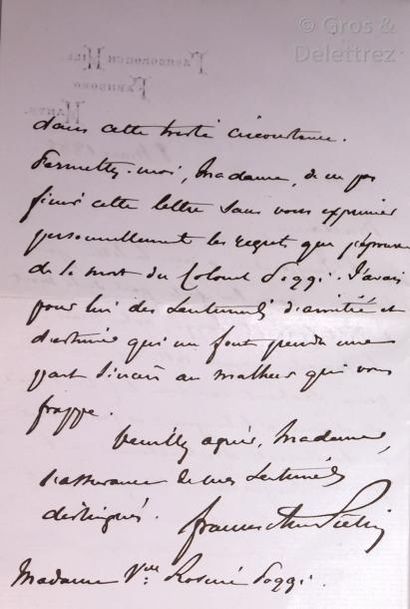 © Gros &
Delettrez
FARNBOROUGH HILL,
FARNBORO
HANTS.
dans cette triste circonstance.
Permettez-moi, Madame, de ne pas
finir cette lettre sans vous exprimer
personnellement les regrets que j'éprouve
de la mort du Colonel Poggi. J'avais
pour lui des sentiments d'amitié et
d'estime qui me font prendre une
part sincère au malheur qui vous
frappe.
Veuillez agréer, Madame,
l'assurance de mes sentiments
distingués.
Madame Vve Poggi.